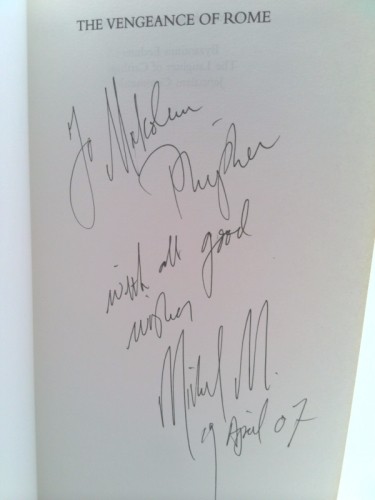 THE VENGEANCE OF ROME
To Malcolm
with all good
wishes
Michael M.
19 April 07